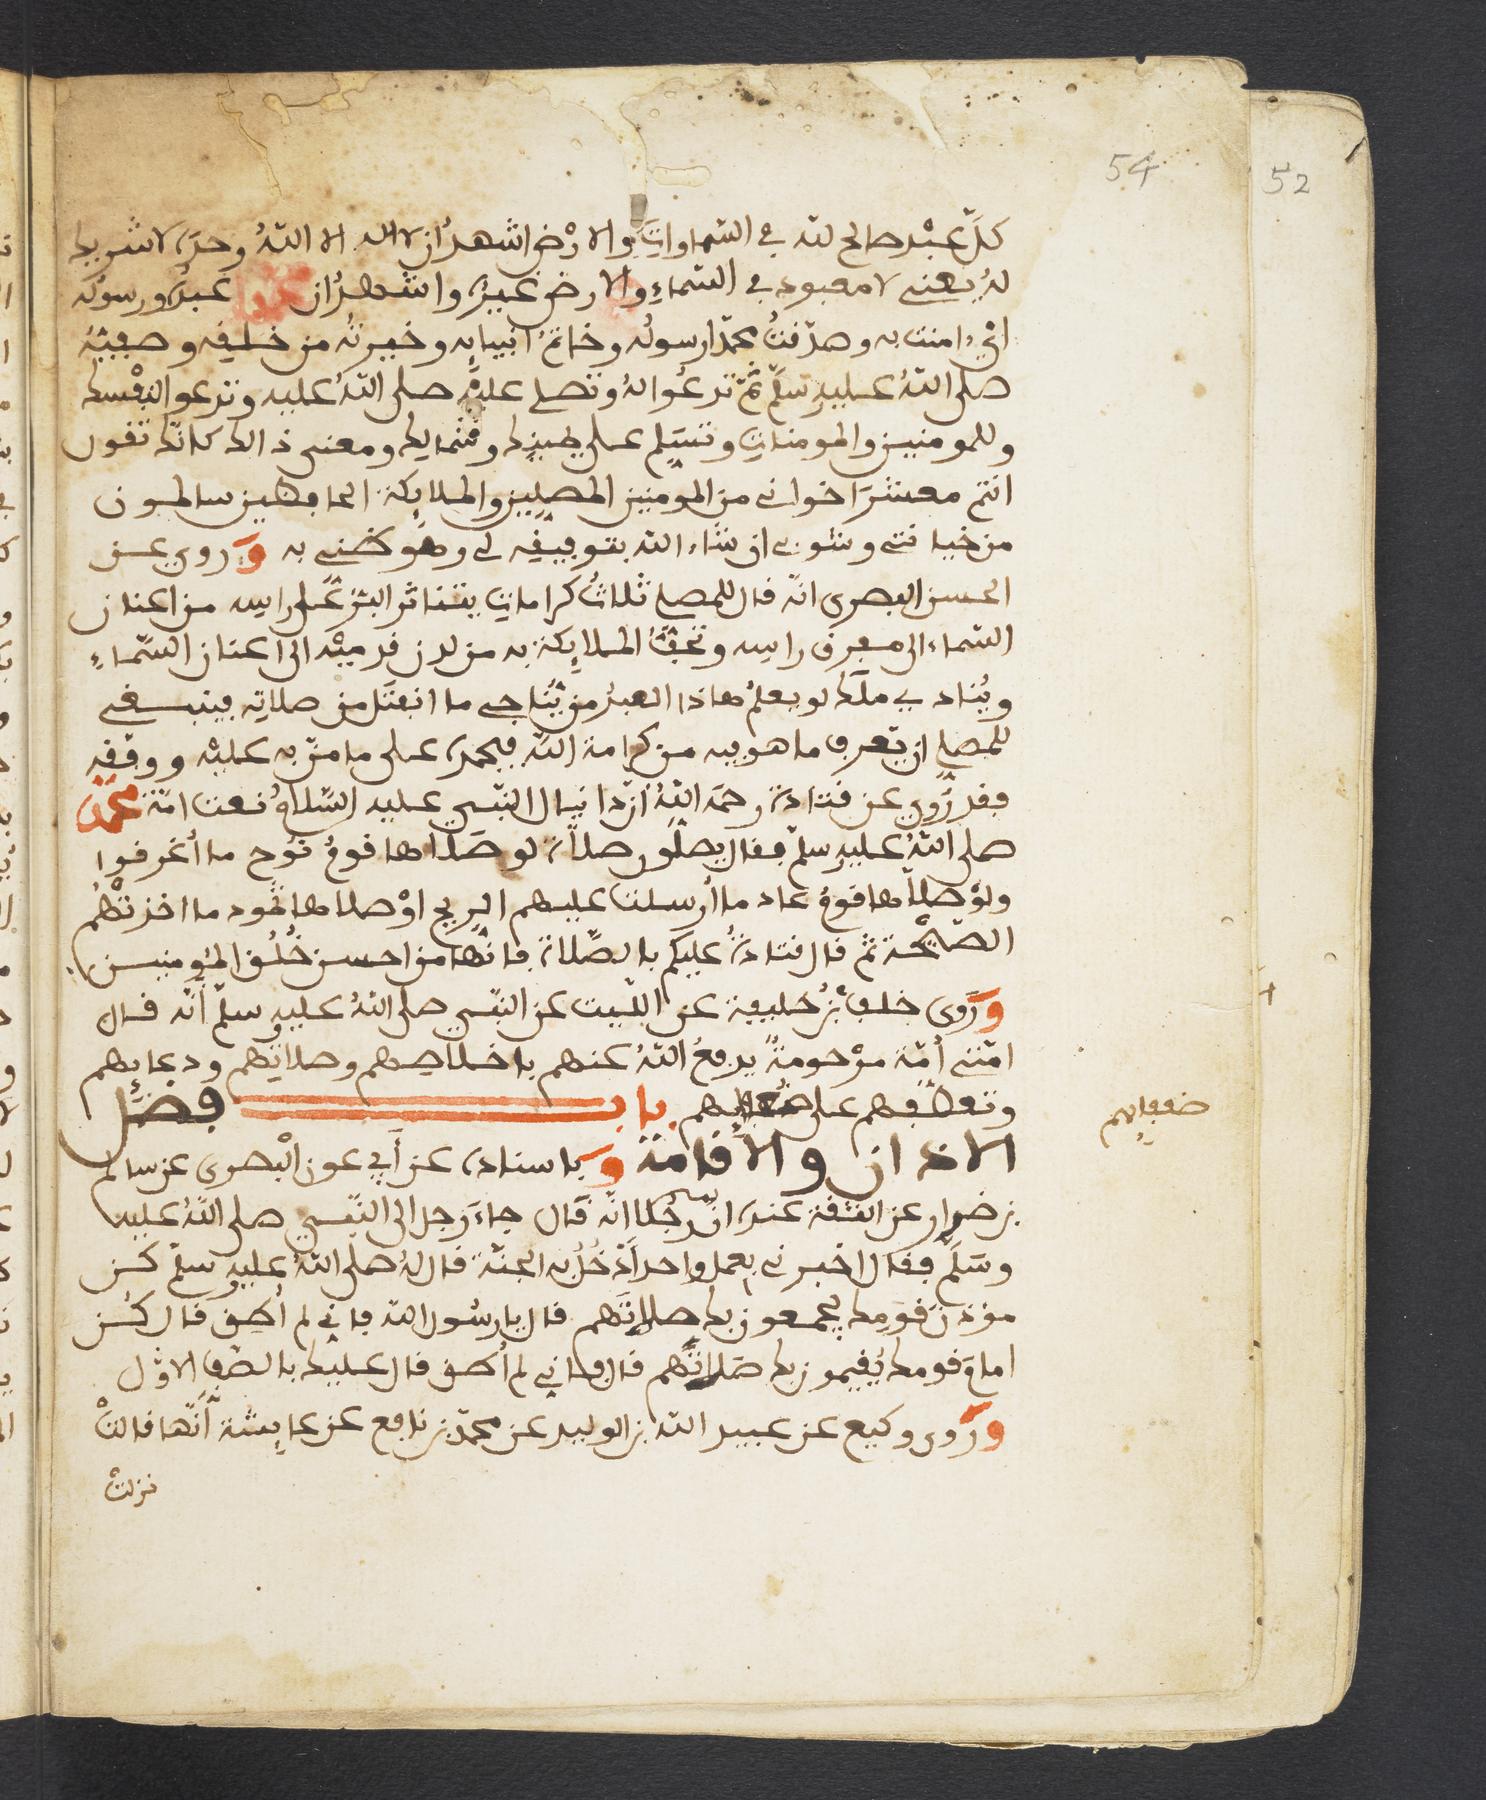 54
52
كلّ عبد صالح لله في السّماوات والارض اشهد ان لا اله الا اللّهُ وحده لا شريك
لهُ يعني لا معبود في السّماءِ والارض غيره واشهد ان محمدا عبده ورسوله
اي ءامنت به وصدّقتُ محمّدا رسوله وخاتمُ انبيايه وخيرته من خلقه وصفيّهُ
صلى اللّهُ عليه وسلّم ثمّ تدعُوا لهُ وتصلي عليه صلى اللّهُ عليه وتدعوا لنفْسك
وللمومنين والمومنات وتسَلِّم على يمينك وشمالِك ومعنى ذالك كانّك تقول
انتم معشرَ اخواني من المومنين المصلِّين والملايِكة الحافظين سالمون
من خيانتي وشري ان شاء اللّه بتوفيقِه لي وهو حسبي به وَروي عن
الحسن البصرى انّه قال للمصلي ثلاثُ كرامات يتناثر البرّ على راسِه من اعنان
السّماء الى مفرِق راسِه وتحفُّ الملايِكة به من لدن قدميْه الى اعنان السّماءِ
ويُنادي ملَك لو يعلمُ هاذا العبدُ من يُّناجي ما انفتَل من صلاتِه فينبغي
للمصلي ان يّعرف ما هو فيه من كرامة اللّه فيحمده على ما منّ به عليْه ووفّقه
فقد رُوي عن قتادة رحمَه اللّهُ انّ دانيال النّبي عليه السّلامُ نعت امّةَ محمّد
صلى اللّهُ عليه وسلّم فقال يصلّون صلاةً لو صَلّاها قومُ نُوح ما أُغرقوا
ولوْ صلّاها قومُ عاد ما أُرسلت عليهم الرّيح اوْ صلاها ثمُود ما اخذتْهُم
الصّيْحة ثمّ قال قتادةُ عليكم بالصّلاة فانّها من احسن خُلُق المومنين
وَرَوى خلف بنُ خليفة عن اللّيث عن النّبي صلى اللّهُ عليه وسلّم أنّه قال
امّتي أُمّة مرْحومةٌ يدفعُ اللّهُ عنهم باخلاصِهم وصلاتِهم ودعايِهم
وتعطّفِهم على ضعفايِهم باب فضل
ضعفايِهم
الاذان والاقامة وَباسناده عن أَبي عون الْبصرى عن سالم
بن ضرار عن الثقة عنده انّ رجُلا انّه قَال جاءَ رَجل الى النّبي صلى اللّهُ عليه
وسَلّم فقال اخبرني بعملٍ واحد أَدْخُلُ به الجنّة قال لهُ صلى اللّهُ عليه وسلّم كن
موذنَ قومِك يجمعون بك صلاتَهم قال يا رسُول اللّه فاني لم أُطِق قال كُن
امامَ قومك يُقيمون بك صَلاتَهم قال فاني لم أُطق قال عليك بالصّف الاوّل
وَرَوى وكيع عن عبيد اللّه بن الوليد عن محمّد بن نافع عن عايِشة أَنّها قالتْ
نزلتْ